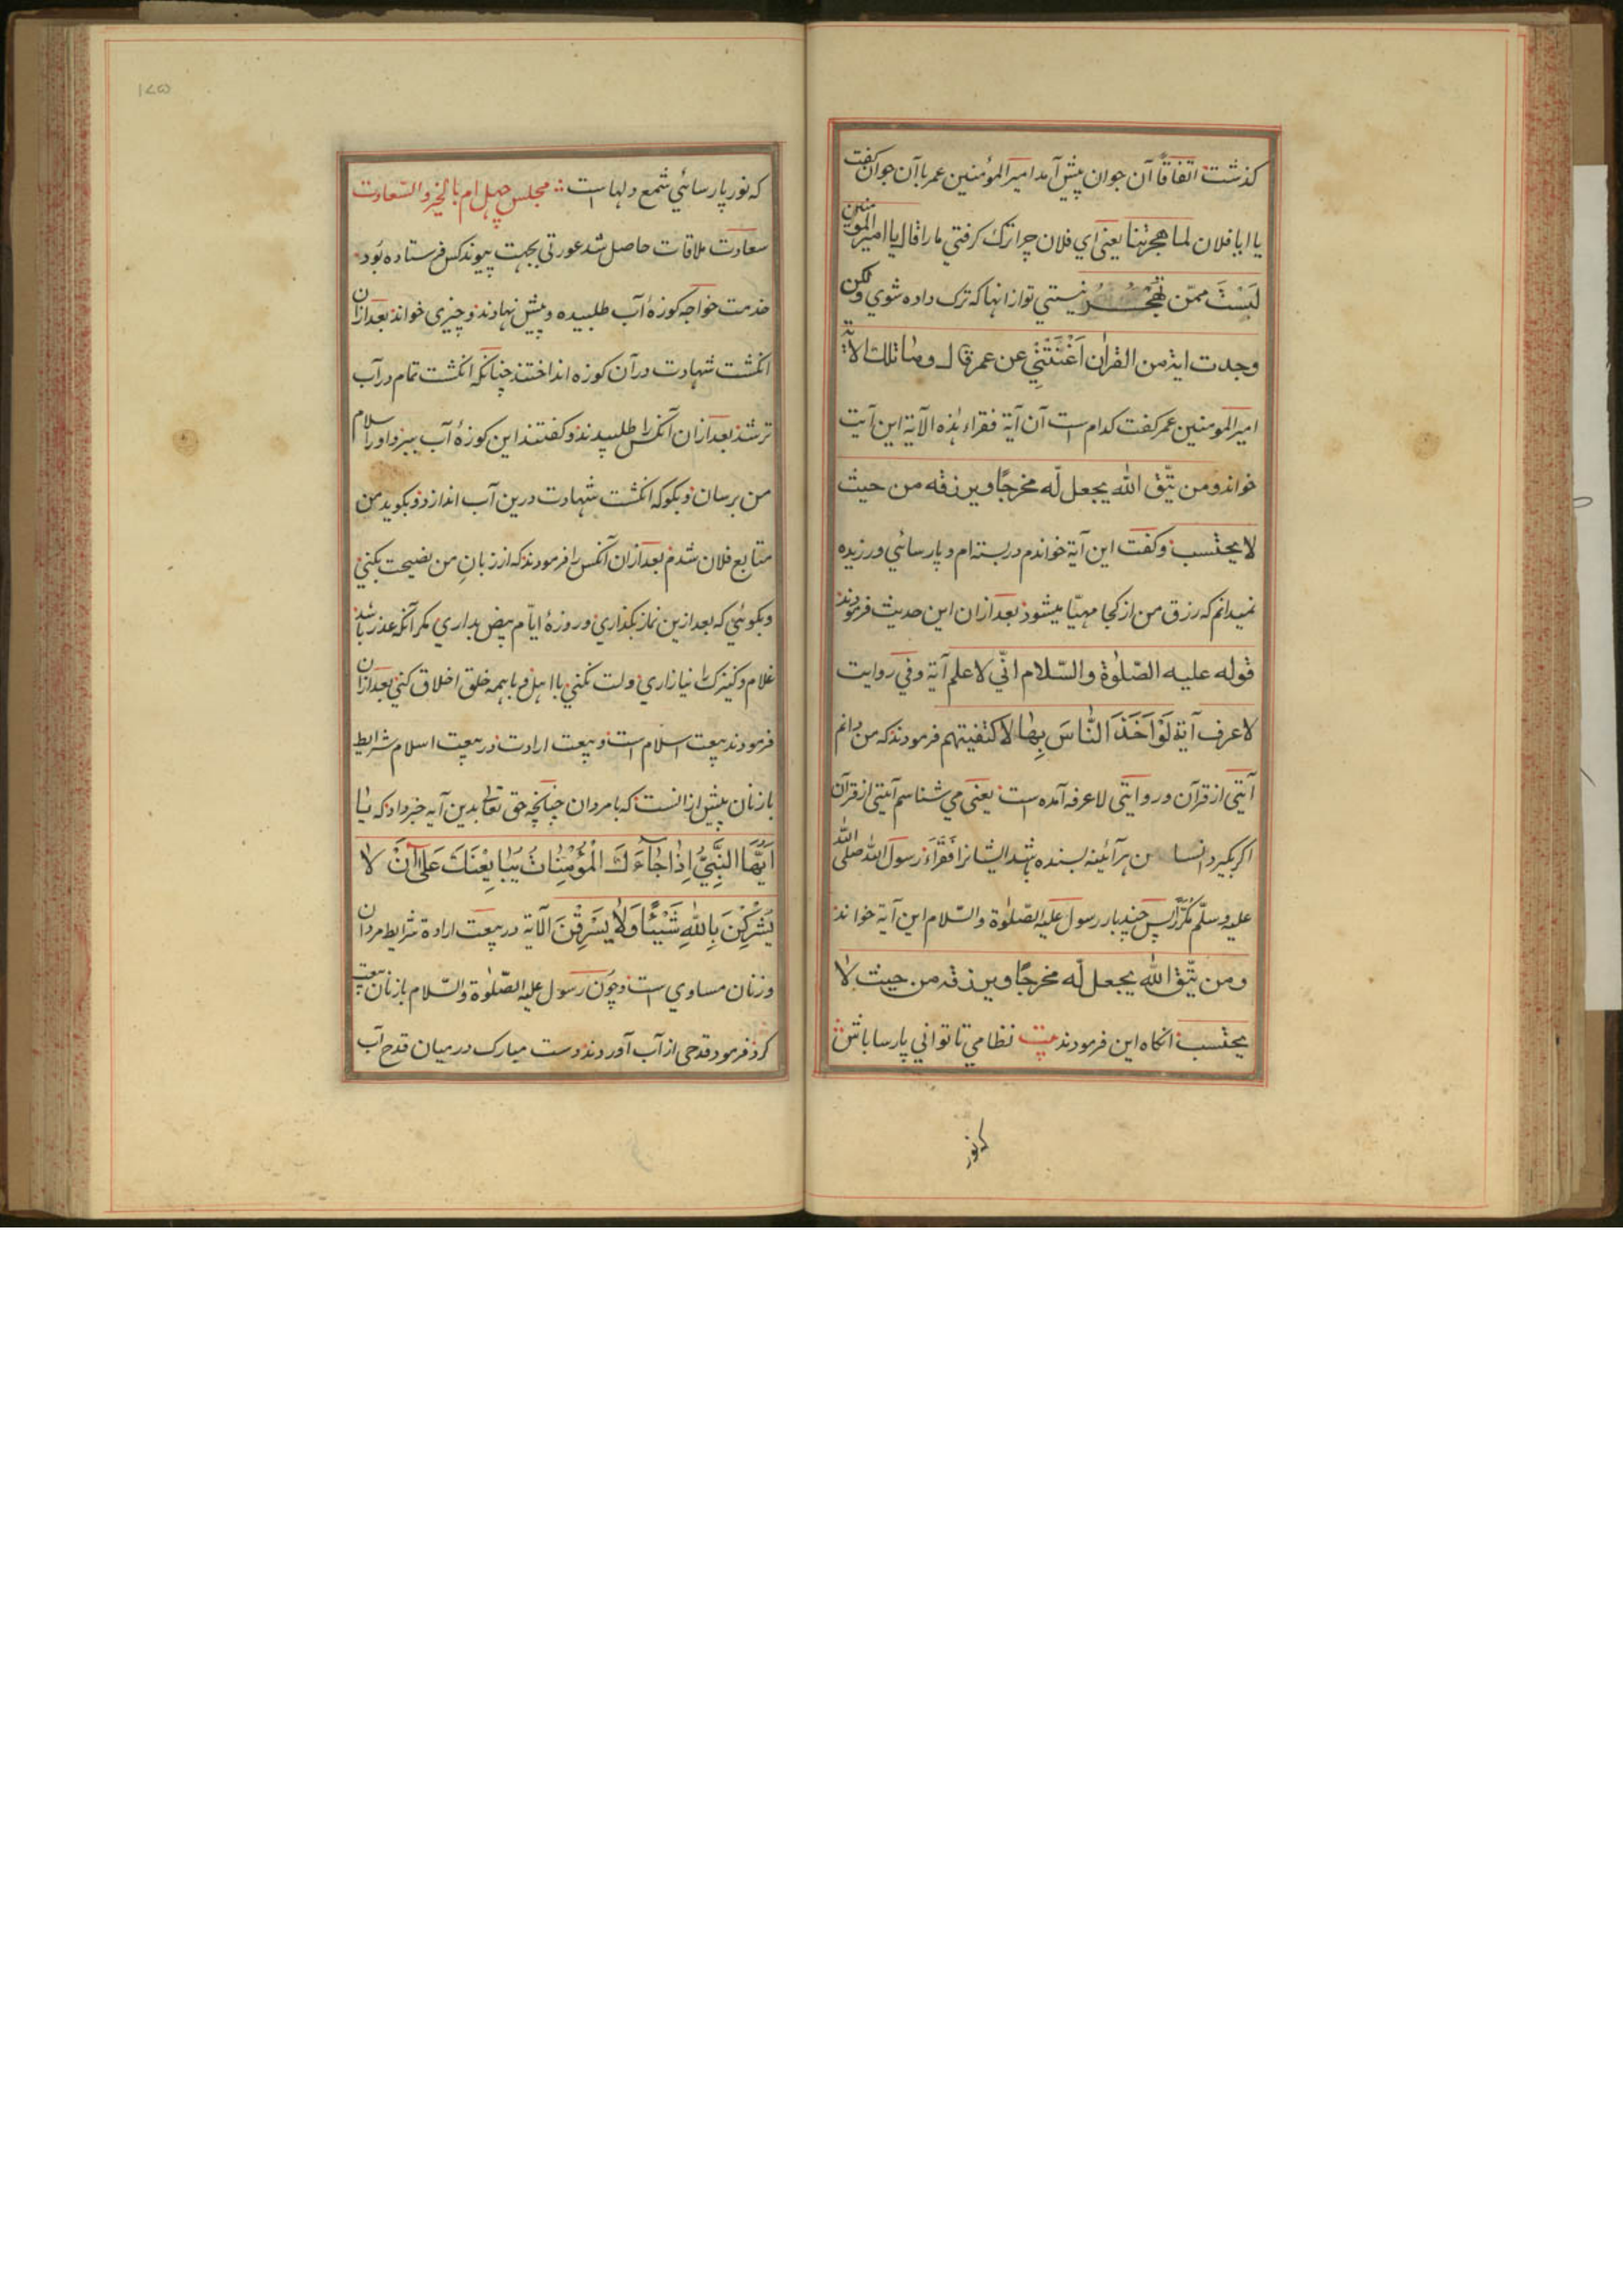 كذشت اتفاقًا آن جوان پيش آمد امير المؤمنين عمر باآن جوان كفت
يا ابا فلان لما هجرتنا يعنى اي فلان چرا ترك كرفتي ما را قال يا امير المومنين
لَسْتَ ممّن تهجر نيستي تو از انها كه ترك داده شوي ولكن
وجدت اية من القران اَغْنَتْنِي عن عمر قال وما تلك الاية
امير المومنين عمر كفت كدام است آن آية فقراء هٰذه الآية اين آيت
خواند ومن يتّق الله يجعل لّه مخرجًا ويرزقه من حيث
لا يحتسب وكفت اين آية خواندم در بسته ام و پارسائي ورزيده
نميدانم كه رزق من از كجا مهيّا ميشود بعد ازان اين حديث فرمودند
قوله عليه الصّلوٰة والسّلام انّي لا علم آية وفي روايت
لا عرف آية لَوْ اَخَذَ النَّاسَ بِهَا لاكتفيتهم فرمودند كه من دانم
آيتى از قرآن و روايتى لا عرفه آمده ست يعنى مي شناسم آيتى از قرآن
اكر بكيرد انسان هرآئينه بسنده باشد ايشانرا فَقَراءَ رسول الله صلى الله
عليه وسلّم مُكَرَّرًا پس چند بار رسول عليه الصّلوٰة والسّلام اين آية خواند
ومن يتّق الله يجعل لّه مخرجًا ويرزقه من حيث لا
يحتسب انكاه اين فرمودند بيت نظامي تا تواني پارسا باش
كه نور
١٧٥
كه نور پارسائي شمع دلها است مجلس چهل ام بالخير والسّعادت
سعادت ملاقات حاصل شد عورتى بجهت پيوند كس فرستاده بُود
خدمت خواجه كوزهٔ آب طلبيده و پيش نهادند و چيزى خواند بعد ازان
انكشت شهادت در آن كوزه انداختند چنانكه انكشت تمام در آب
تر شد بعد ازان آنكس را طلبيدند و كفتند اين كوزهٔ آب ببر و اورا سلام
من برسان و بكو كه انكشت شهادت درين آب اندازد و بكويد من
متابع فلان شدم بعد ازان آنكس را فرمودند كه از زبانِ من نصيحت بكني
و بكوئي كه بعد ازين نماز بكذاري و روزهٔ ايّام بيض بداري مكر آنكه عذر باشد
غلام و كنيزك را نيازاري و لت نكني با اهل و باهمه خلق اخلاق كني بعد ازان
فرمودند بيعت اسلام است و بيعت ارادت در بيعت اسلام شرايط
بازنان پيش ازانست كه بامردان چنانچه حق تعالى بدين آيه خبر داد كه يا
اَيُّهَا النَّبِيُّ اِذَا جَآءَكَ الْمُؤْمِنَاتُ يُبَايِعْنَكَ عَلٰى اَنْ لا
يُشْرِكْنَ بِاللّٰهِ شَيْئًا وَلَا يَسْرِقْنَ الآية در بيعت ارادة شرايط مردان
و زنان مساوي است و چون رسول عليه الصّلوٰة والسّلام بازنان بيعت
كرد فرمود قدحى از آب آوردند دست مبارك در ميان قدح آب